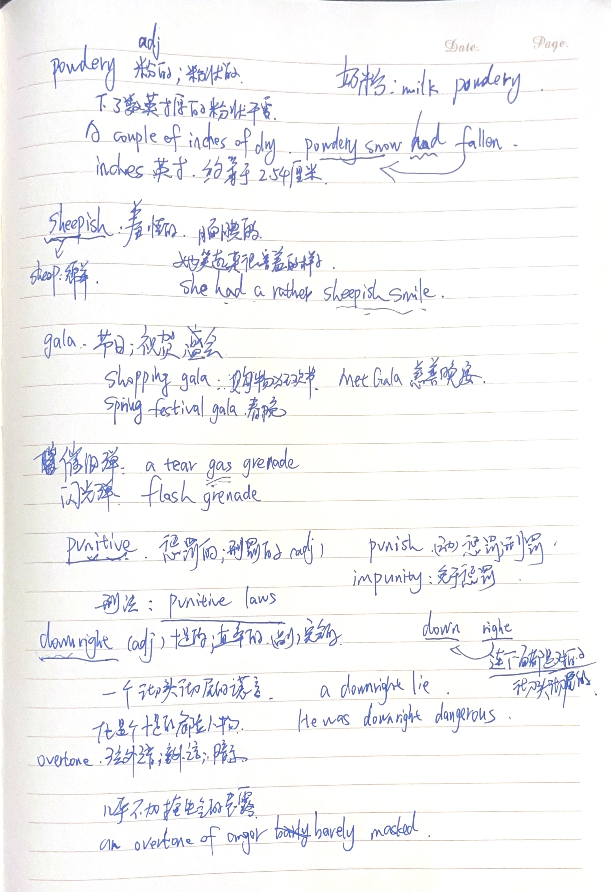 Date. Page.
adj
powdery 粉的;粉状的. 奶粉:milk powdery.
下了数英寸厚的粉状干雪.
A couple of inches of dry. powdery snow had fallen.
inches 英寸. 约等于2.54厘米.
sheepish. 羞怯的. 腼腆的.
sheep:绵羊. 她笑起来很害羞的样子.
She had a rather sheepish smile.
gala. 节日;祝贺 盛会
Shopping gala: 购物狂欢节. Met Gala 慈善晚宴.
Spring festival gala. 春晚
催泪弹. a tear gas grenade
闪光弹 flash grenade
punitive. 惩罚的;刑罚的(adj) punish (动)惩罚;刑罚.
impunity:免于惩罚.
刑法: punitive laws
downright (adj)十足的;直率的(副)完全的. down right
连下面都是对的
一个彻头彻尾的谎言. a downright lie. 彻头彻尾的
他是个十足的危险人物. He was downright dangerous.
overtone. 弦外之音;言外之意;暗示.
几乎不加掩饰的
an overtone of anger barely masked.